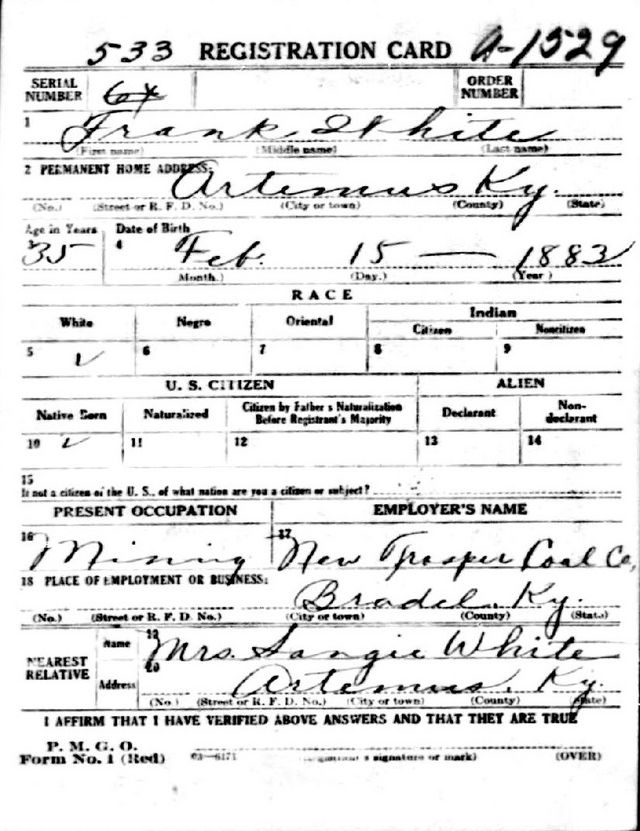 533 REGISTRATION CARD A-1529
SERIAL NUMBER 64 ORDER NUMBER
1 Frank White
(First name) (Middle name) (Last name)
2 PERMANENT HOME ADDRESS:
Artemus Ky.
(No.) (Street or R. F. D. No.) (City or town) (County) (State)
Age in Years Date of Birth
3 35 4 Feb. 15 — 1883
Month.) (Day.) (Year)
RACE
White Negro Oriental Indian
Citizen Noncitizen
5 ✓ 6 7 8 9
U. S. CITIZEN ALIEN
Native Born Naturalized Citizen by Father's Naturalization Before Registrant's Majority Declarant Non-declarant
10 ✓ 11 12 13 14
15
If not a citizen of the U. S., of what nation are you a citizen or subject?
PRESENT OCCUPATION EMPLOYER'S NAME
16 Mining 17 New Prosper Coal Co,
18 PLACE OF EMPLOYMENT OR BUSINESS:
Ky.
(No.) (Street or R. F. D. No.) (City or town) (County) (State)
NEAREST RELATIVE Name 19 Mrs. White
Address 20 Artemus, Ky.
(No.) (Street or R. F. D. No.) (City or town) (County) (State)
I AFFIRM THAT I HAVE VERIFIED ABOVE ANSWERS AND THAT THEY ARE TRUE
P. M. G. O.
Form No. 1 (Red) 03—6171 signature or mark) (OVER)